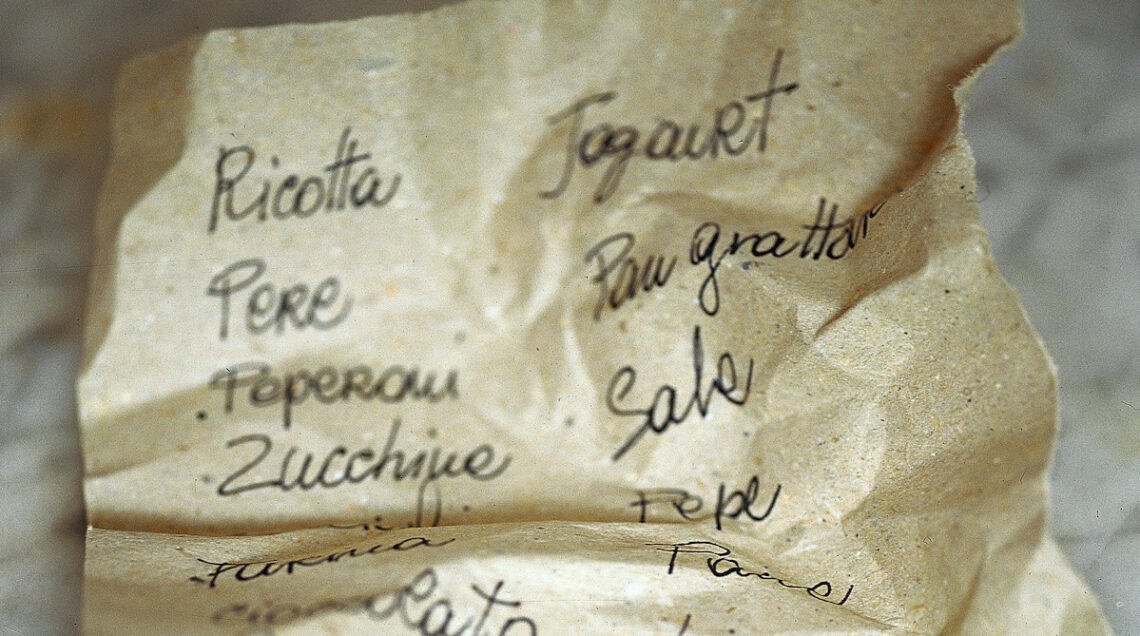 Ricotta
Pere
Peperoni
Zucchine
Farina
Jogourt
Pan grattat
Sale
Pepe
Pane